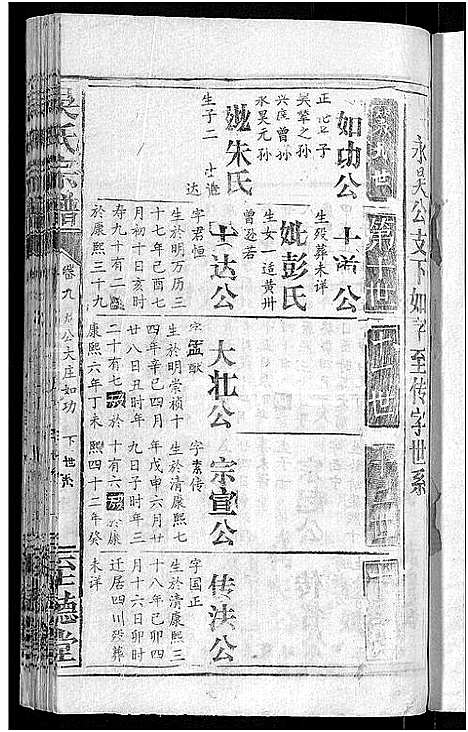 永昊公支下如字至传字世系
第九世
第十世
十一世
如功公
正 子
吴荤之孙
兴度曾孙
永昊元孙
妣朱氏
生子二 士
达
士 公
生殁葬未详
妣彭氏
生女一适黄州
曾逊若
士达公
字君恒
生於明万历三
十七年己酉七
月初十日亥时
寿九十有二
於康熙三十九
大壮公
字孟猷
生於明崇祯十
四年辛巳四月
廿八日丑时年
二十有七殁於
康熙六年丁未
宗宣公
字素传
生於清康熙七
年戊申六月廿
九日子时年三
十有六殁於康
熙四十二年癸
未详
传法公
字国正
生於清康熙三
十八年己卯四
月十六日卯时
迁居四川殁葬
吴氏宗谱
卷九
公大庄如功
下世系
德堂